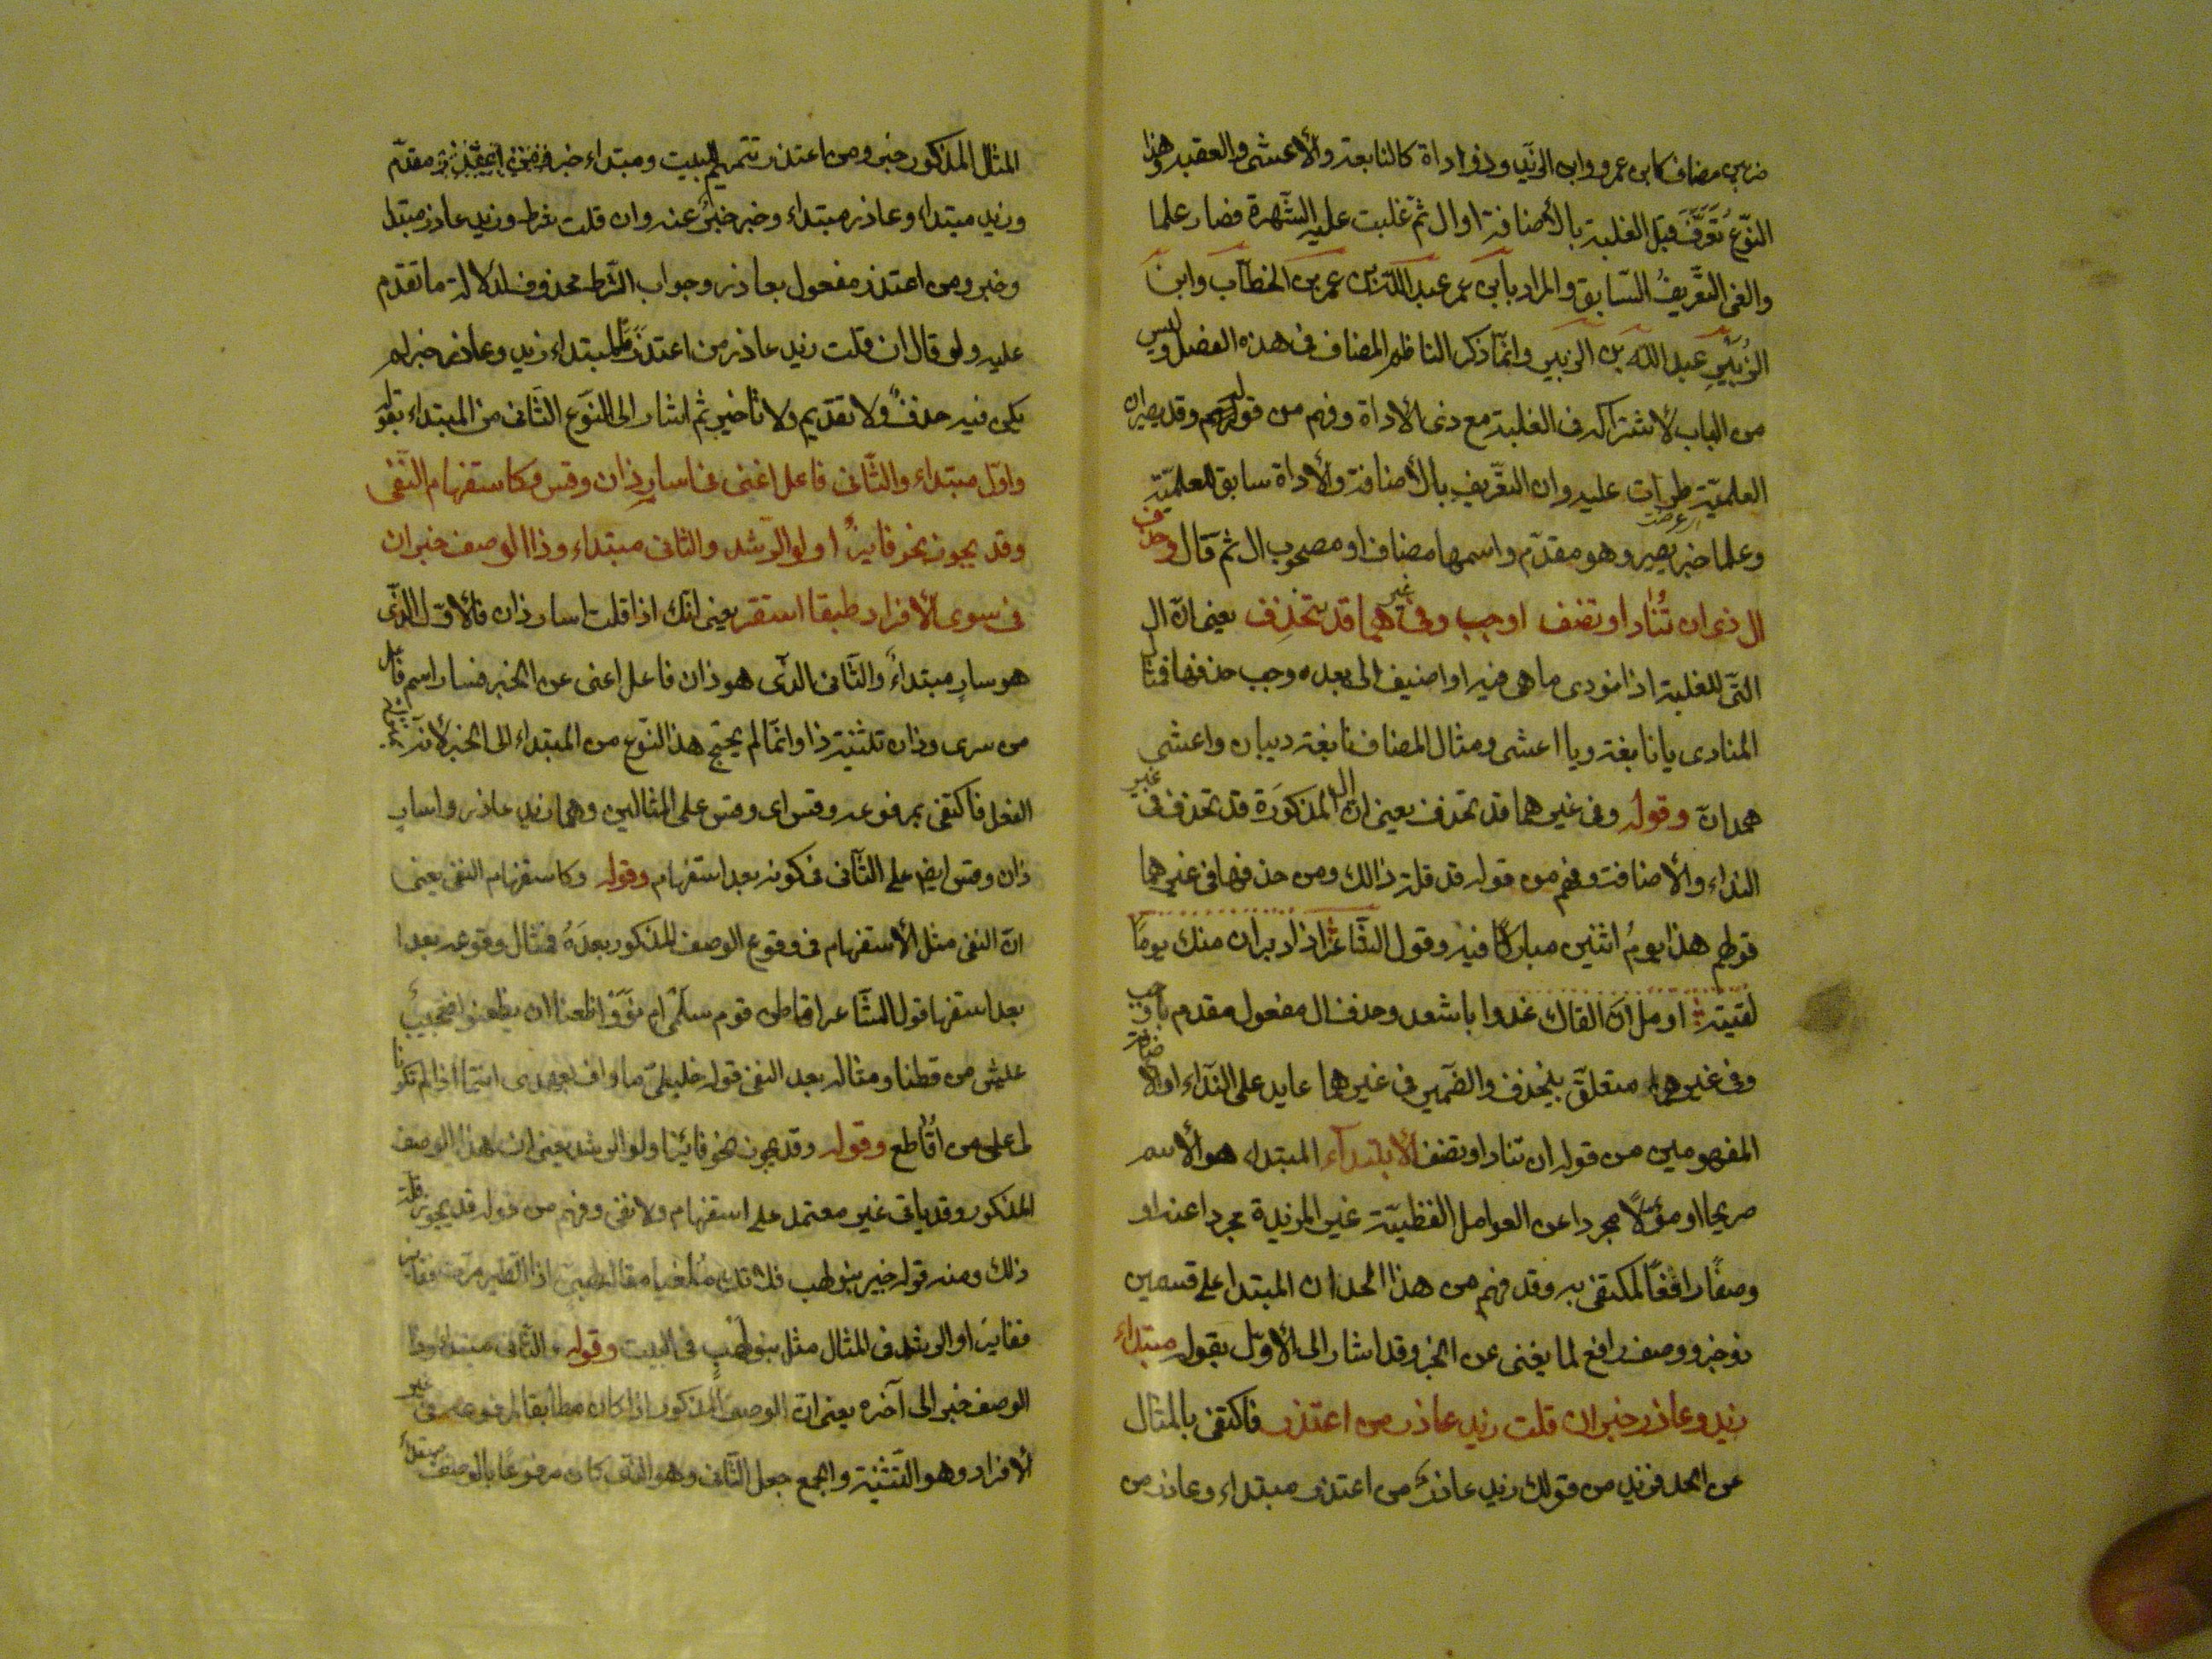 ضربين مضاف كابن عمرو وابن الزبير وذو اداة كالنابعة والأعشى والعقبة وهذا
النّوع تعرّف قبل الغلبة بالأضافة او ال ثمّ غلبت عليه الشّهرة فصار علما
والغى التعريف السّابق والمراد بابن عمر عبد اللّه بن عمر بن الخطاب وابن
الزّبير عبد اللّه بن الزبير وانّما ذكر الناظم المضاف فى هذه الفصل وليس
من الباب لأشتراكه فى الغلبة مع ذى الأداة وفهم من قوله وقد يصير ان
العلميّة طرات عليه وان التعريف بالأضافة والأداة سابق للعلميّة
اى عرضت
وعلما خبر يصير وهو مقدّم واسمها مضاف او مصحوب ال ثم قال وحذف
ال ذى ان تناد او تضف اوجب وفى غيرهما قد تنحذف يعنى انّ ال
التّى للغلبة اذا نودى ما هى فيه او اضيف الى بعده وجب حذفها فمثال
المنادى يا نابغة ويا اعشى ومثال المضاف نابغة ديبان واعشى
همدان وقوله وفى غيرهما قد تحذف يعنى ان ال المذكورة قد تحذف فى غير
النداء والأضافة وفهم من قوله قد قلة ذالك ومن حذفها فى غيرهما
قولهم هذا يوم اثنين مباركا فيه وقول الشّاعر اذا دبران منك يوما
لقيته اومل ان القاك غدوا باسعد وحذف ال مفعول مقدم باوجب
وفى غيرهما متعلّق بينحذف والضّمير فى غيرهما عايد على النّداء او الاضافة
المفهومين من قوله ان تناد او تضف الأبتداء المبتداء هو الأسم
صريحا او مؤوّلًا مجردا عن العوامل الفظيّة غير المزيدة مجردا عنه او
وصفًا رافعًا لمكتفى به وقد فهم من هذا الحد ان المبتدا على قسمين
ذو خبر ووصف رافع لما يغنى عن الخبر وقد اشار الى الأوّل بقوله مبتداء
زيد وعاذر خبر ان قلت زيد عاذر من اعتذر فاكتفى بالمثال
عن الحد فزيد من قولك زيد عاذر من اعتذر مبتداء وعاذر من
المثال المذكور خبر ومن اعتذر تتميم للبيت ومبتداء خبر مقدّم
وزيد مبتداء وعاذر مبتداء وخبر خبر عنه وان قلت شرط وزيد عاذر مبتدا
وخبر ومن اعتذر مفعول بعاذر وجواب الشّرط محذوف لدلالة ما تقدم
عليه ولو قال ان قلت زيد عاذر من اعتذر فالمبتداء زيد وعاذر خبر لم
يكن فيه حذف ولا تقديم ولا تأخير ثم اشار الى النّوع الثّانى من المبتداء بقوله
واوّل مبتداء والثّانى فاعل اغنى فى اسار ذان وقس وكاستفهام النّفى
وقد يجوز نحو فايز اولوا الرّشد والثانى مبتداء وذا الوصف خبر ان
فى سوى الأفراد طبقا استقر يعنى انّك اذا قلت اسار ذان فالأوّل الّذى
هو سار مبتداءٌ والثّانى الذّى هو ذان فاعل اغنى عن الخبر فسار اسم فاعل
من سرى وذان تثنية ذا وانّما لم يحتج هذا النّوع من المبتداء الى الخبر لأنّه
الفعل فاكتفى بمرفوعه وقس اى وقس على المثالين وهما زيد عاذر واسار
ذان وقس ايضا على الثّانى فى كونه بعد استفهام وقوله وكاستفهام النفى يعنى
انّ النفى مثل الأستفهام فى وقوع الوصف المذكور بعدَهُ فمثال وقوعه بعد ا
بعد استفها قول الشّاعر اقاطن قوم سلمى ام نوَوْا ظعنا ان يظعنوا فعجيب
عيش من قطنا ومثاله بعد النفى قوله خليلىّ ما واف بعهدى انتما اذا لم تكونا
لى على من اقاطع وقوله وقد يجوز نحو فايز اولوا الرشد يعنى ان هذا الوصف
المذكور وقد ياتى غير معتمد على استفهام ولا نفى وفهم من قوله قد يجوز قلة
ذلك ومنه قوله خبير بنو لهب فلا تك ملغيا مقالة لهبىّ اذا الطير مرّت
ففايز اولوا الرشد فى المثال مثل بنو لهب فى البيت وقوله والثّانى مبتداء وذا
الوصف خبر الى آخره يعنى انّ الوصف المذكور اذا كان مطابقا لمرفوعه فى غير
الأفراد وهو التثنية والجمع جعل الثّانى وهو الذى كان مرفوعًا بالوصف مبتداء